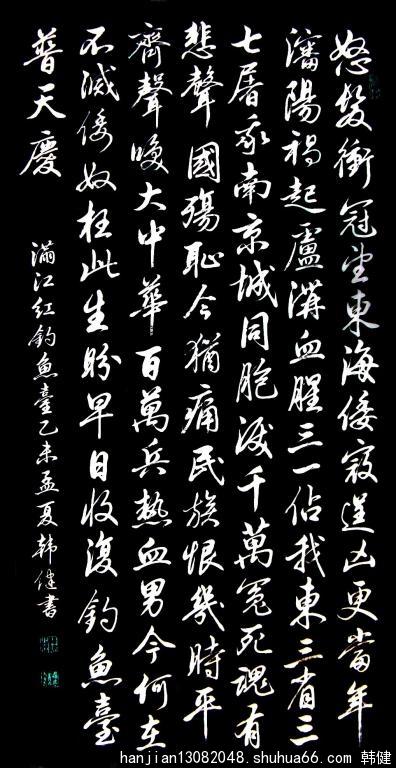 怒髮衝冠望東海倭寇逞凶更當年
瀋陽禍起盧溝血腥三一佔我東三省三
七屠我南京城同胞淚千萬冤死魂有
悲聲國殤恥今猶痛民族恨幾時平
齊聲喚大中華百萬兵熱血男今何在
不滅倭奴枉此生盼早日收復釣魚臺
普天慶
滿江紅釣魚臺乙未孟夏韩健書
hanjian13082048.shuhua66.com 韩健